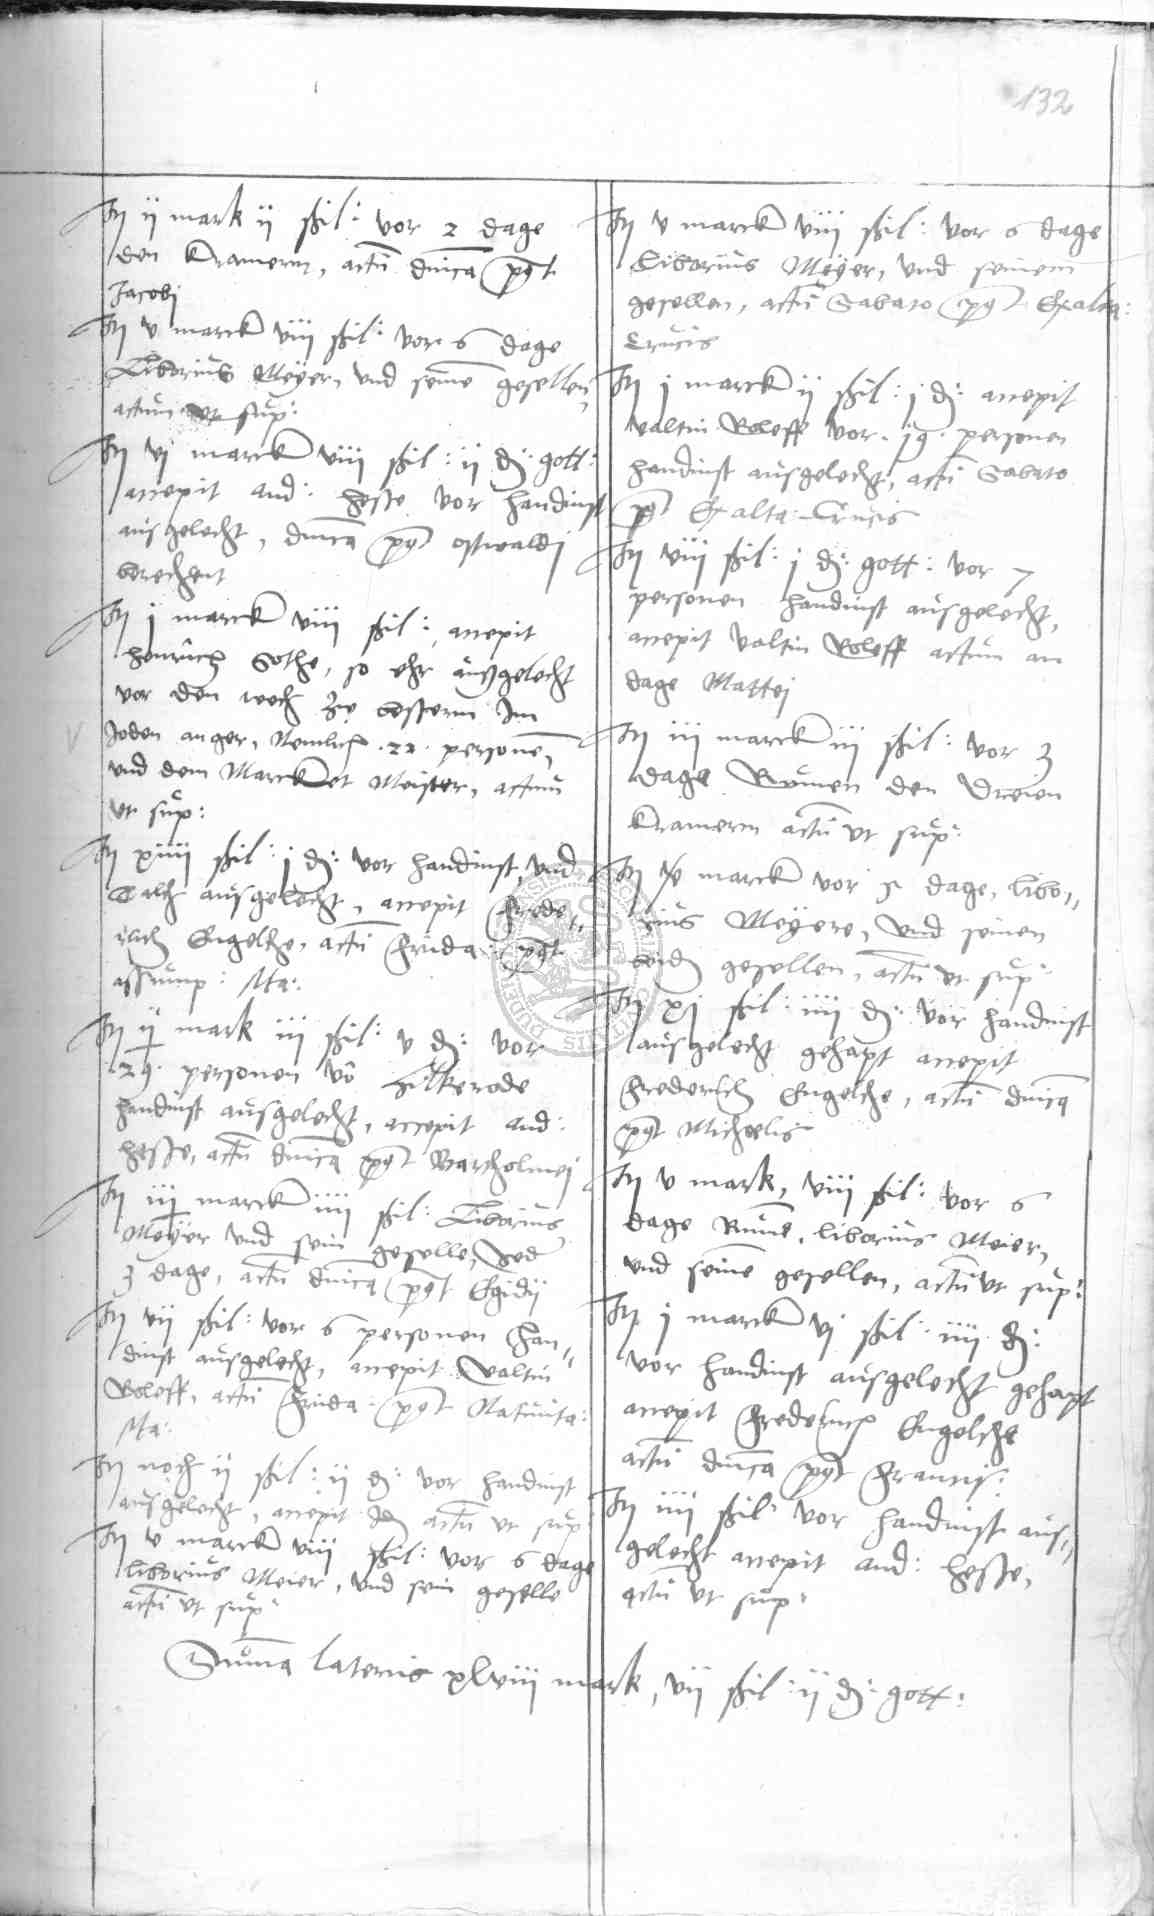 132
It ij mark ij ßhil: vor 2 dage
den kramern, actū dnīca pꝯt
Jacobi
It v marck viij ßhil: vor 6 dage
Liborius Meÿer, vnd seinē gesellen,
actum ut sup:
It vj marck viij ßhil: ij ₰: gott:
accepit And: Hesse vor handinst
ausgelecht, dnīca pꝯt Oswaldj
berechent
It j marck viij ßhil: accepit
Henrich Gothe, so ehr außgelecht
vor den wech zu bessern Im
Joden anger, Nemlich .22. personē,
vnd dem Marcket Meister, actum
ut sup:
It xiiij ßhil: j ₰: vor handinst, vnd
Calck ausgelecht, accepit Frede-
rich Engelke, actū Frida: pꝯt
assump: Ma:
It ij mark iij ßhil: v ₰: vor
29. personen vō Hilkerode
handinst ausgelecht, accepit And:
Hesse, actū dnīca pꝯt Bartholmej
It iij marck iiij ßhil: Liborius
Meÿer vnd sein geselle,
3 dage, actū dnīca pꝯt Egidij
It vij ßhil: vor 6 personen han-
dinst ausgelecht, accepit Valtin
Roleff, actū Frida: pꝯt Natiuita:
Ma:
It noch ij ßhil: ij ₰: vor handinst
ausgelecht, accepit Idē actū ut sup:
It v marck viij ßhil: vor 6 dage
Liborius Meier, vnd sein geselle
actū ut sup:
It v marck viij ßhil: vor 6 dage
Liborius Meÿer, vnd seinem
gesellen, actū Sabato pꝯt Exalta:
Crucis
It j marck ij ßhil: j ₰: accepit
Valtin Roleff vor .19. personen
handinst ausgelecht, actū Sabato
pꝯt Exalta: Crucis
It viij ßhil: j ₰: gott: vor 7
personen handinst ausgelecht,
accepit Valtin Roleff actum am
dage Mattej
It iij marck iij ßhil: vor 3
dage Rumen den dreien
kramern actū ut sup:
It marck vor 5 dage, Libo-
rius Meÿere, vnd seinen
beidē gesellen, actū ut sup:
It xj ßhil: iiij ₰: vor handinst
ausgelecht gehapt accepit
Frederich Engelche, actū dnīca
pꝯt Michaelis
It v mark, viij ßhil: vor 6
dage Rumē, Liborius Meier,
vnd seinē gesellen, actū ut sup:
It j marck vj ßhil: iiij ₰:
vor handinst ausgelecht gehapt
accepit Frederich Engelche
actū dnīca pꝯt Francis:
It iiij ßhil: vor handinst aus-
gelecht accepit And: Hesse,
actū ut sup:
Sūma lateris xlviij mark, vij ßhil: ij ₰: gott: